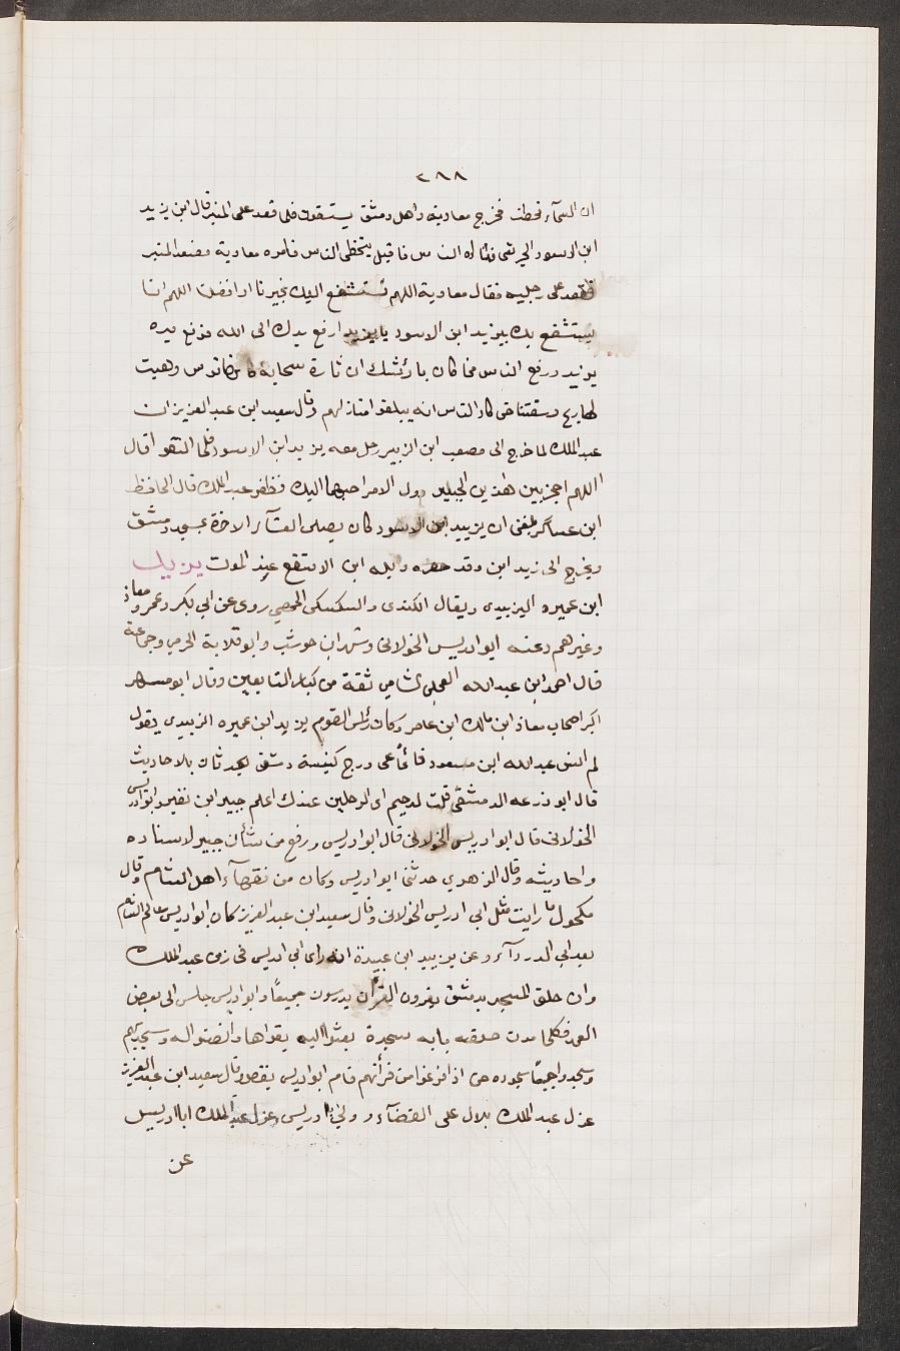 ٢٨٨
ان السمآء قحطت فخرج معاوية واهل دمشق يستسقون فلما قعد على المنبر قال ابن يزيد
ابن الاسود الجرشى فناداه الناس فاقبل يتخطى الناس فامره معاوية فصعد المنبر
فقعد على رجليه فقال معاوية اللهم نستشفع اليك بخيرنا وافضلنا اللهم انا
نستشفع بك بيزيد ابن الاسود يا يزيد ارفع يدك الى الله فرفع يده
يزيد ورفع الناس فما كان باوشك ان ثارة سحابة كانها ترس وهبت
لها ريح وسقتنا حتى كاد الناس انه يبلغوا منازلهم وقال سعيد ابن عبد العزيز ان
عبد الملك لما خرج الى مصعب ابن الزبير رحل معه يزيد ابن الاسود فلما التقوا قال
اللهم احجز بين هذين الجبلين وول الامر احبهما اليك فظفر عبد الملك قال الحافظ
ابن عساكر بلغنى ان يزيد ابن الاسود كان يصلى العشآء الاخرة بمسجد دمشق
ويخرج الى زيدين وقد حضره واثله ابن الاسقع عند الموت يزيد
ابن عميره الزبيدى ويقال الكندى والسكسكى الحمصي روى عن ابي بكر وعمر ومعاذ
وغيرهم وعنه ابو ادريس الخولانى وشهر ابن حوشب وابو قلابة الجرمي وجماعة
قال احمد ابن عبد الله العجلى شامي ثقة من كبار التابعين وقال ابو مسهر
اكبر اصحاب معاذ ابن مالك ابن عامر وكان رأس القوم يزيد ابن عميره الزبيدى يقول
لم انس عبد الله ابن مسعود قائماً على درج كنيسة دمشق يحدثنا بالاحاديث
قال ابو زرعه الدمشقى قلت لدحيم اى الرجلين عندك اعلم جبير ابن نفير وابو ادريس
الخولانى قال ابو ادريس الخولانى قال ابو ادريس ورفع من شأن جبير لاسناده
واحاديثه وقال الزهري حدثنى ابو ادريس وكان من فقهآء اهل الشام وقال
مكحول ما رايت مثل ابي ادريس الخولانى وقال سعيد ابن عبد العزيز كان ابو ادريس عالم الشام
بعد ابي الدردآء وعن يزيد ابن عبيدة انه راى ابى ادريس فى زمن عبد الملك
وان حلق المسجد بدمشق يقرون القرآن يدرسون جميعاً وابو ادريس جالس الى بعض
العمد فكلما مرت حلقه بايه سجدة بعثوا اليه يقراها وانصتوا له وسجد بهم
وسجدوا جميعاً بسجوده حتى اذا فرغوا من قرأتهم قام ابو ادريس يقص وقال سعيد ابن عبد العزيز
عزل عبد الملك بلال على القضآء وولى ادريس وعزل عبد الملك ابا ادريس
عن